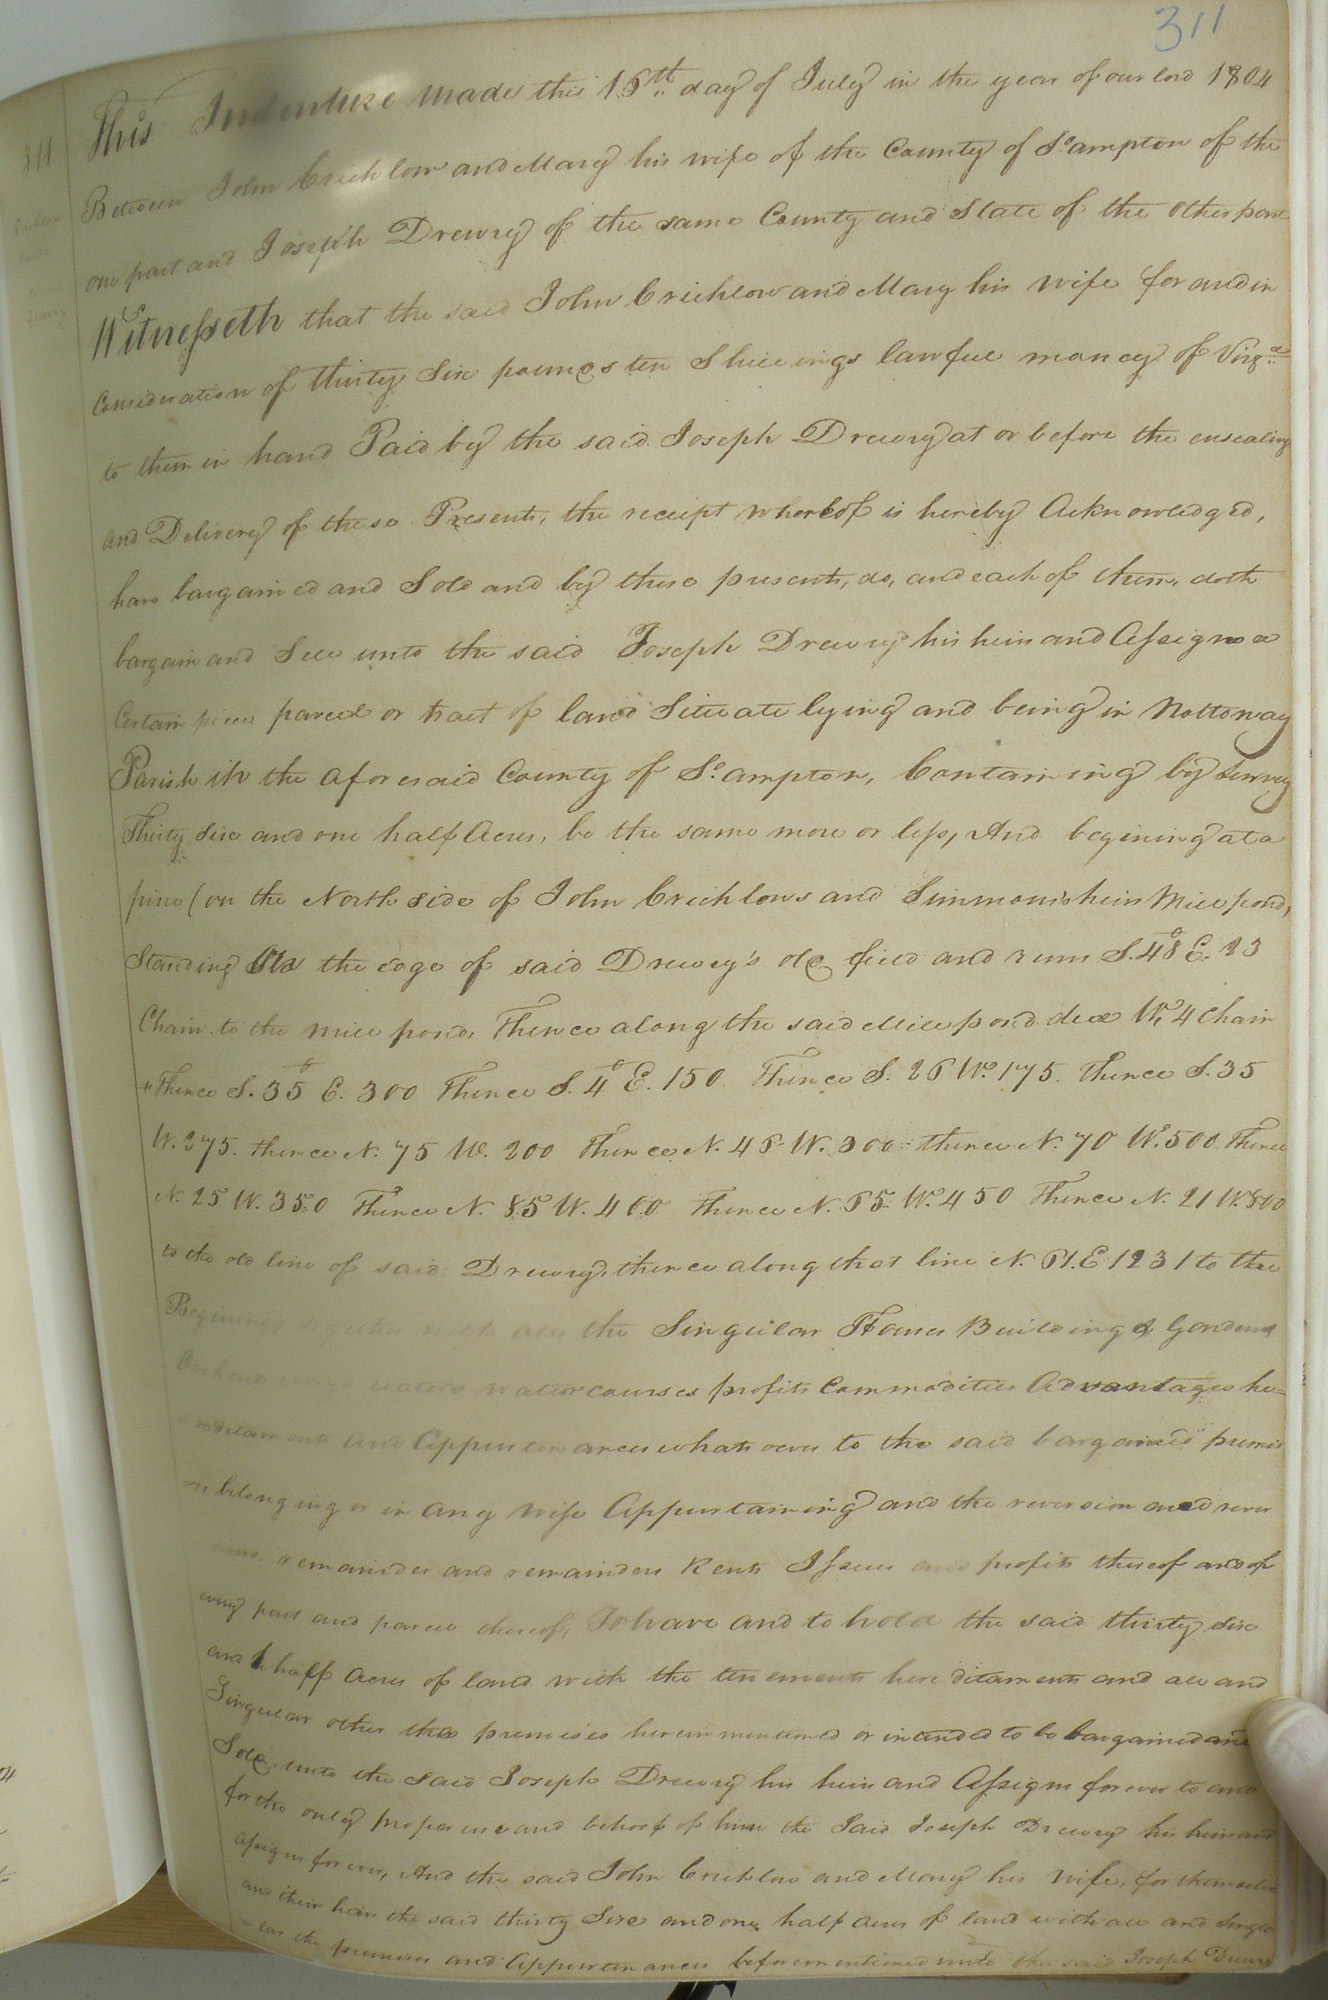 311
This Indenture made this 16th day of July in the year of our lord 1804
Between John Crichlow and Mary his wife of the County of So.ampton of the
one part and Joseph Drewry of the same County and State of the other part
Witnesseth that the said John Crichlow and Mary his wife for and in
Consideration of thirty Six pounds ten Shillings lawful money of Virga.
to them in hand Paid by the said Joseph Drewry at or before the ensealing
and Delivery of these Presents, the receipt whereof is hereby Acknowledged,
have bargained and Sold and by these presents, do, and each of them, doth
bargain and Sell unto the said Joseph Drewry his heirs and Assigns a
Certain piece parcel or tract of land Situate lying and being in Nottoway
Parish in the aforesaid County of So.ampton, Containing by Survey
Thirty Six and one half Acres, be the same more or less, And begining at a
pine (on the North side of John Crichlows and Simmons's heirs Mill pond,
Standing the edge of said Drewry's old field and runs S. 48° E. 23
Chain to the mill pond, Thence along the said Mill pond due W. 4 Chain
Thence S. 35° E. 300 Thence S. 4° E. 150. Thence S. 26 W. 175. Thence S. 35
W. 275. thence N. 75 W. 200 Thence N. 46 W. 300 thence N. 70 W. 500 Thence
N. 25 W. 350 Thence N. 85 W. 400 Thence N. 65 W. 450 Thence N. 21 W. 800
to the old line of said Drewry, thence along that line N. 61. E 1231 to the
Begining together with all the Singular Houses Buildings Gardens
Orchard ways waters watercourses profits Commodities Advantages he=
reditaments and Appurtenances whatsoever to the said bargained premis
es belonging or in any wise Appurtaining and the reversion and rever
sions, remainder and remainders Rents Issues and profits thereof and of
every part and parcel thereof, To have and to hold the said thirty six
and half Acres of land with the tenements hereditaments and all and
Singular other the premises herein mentioned or intended to be bargained and
Sold unto the said Joseph Drewry his heirs and Assigns forever to and
for the only proper use and behoof of him the Said Joseph Drewry his heirs and
assigns forever, And the said John Crichlow and Mary his Wife, for themselves
and their heirs the said thirty Six and one half acres of land with all and Singu
lar the premises and Appurtenances before mentioned unto the said Joseph Drewry